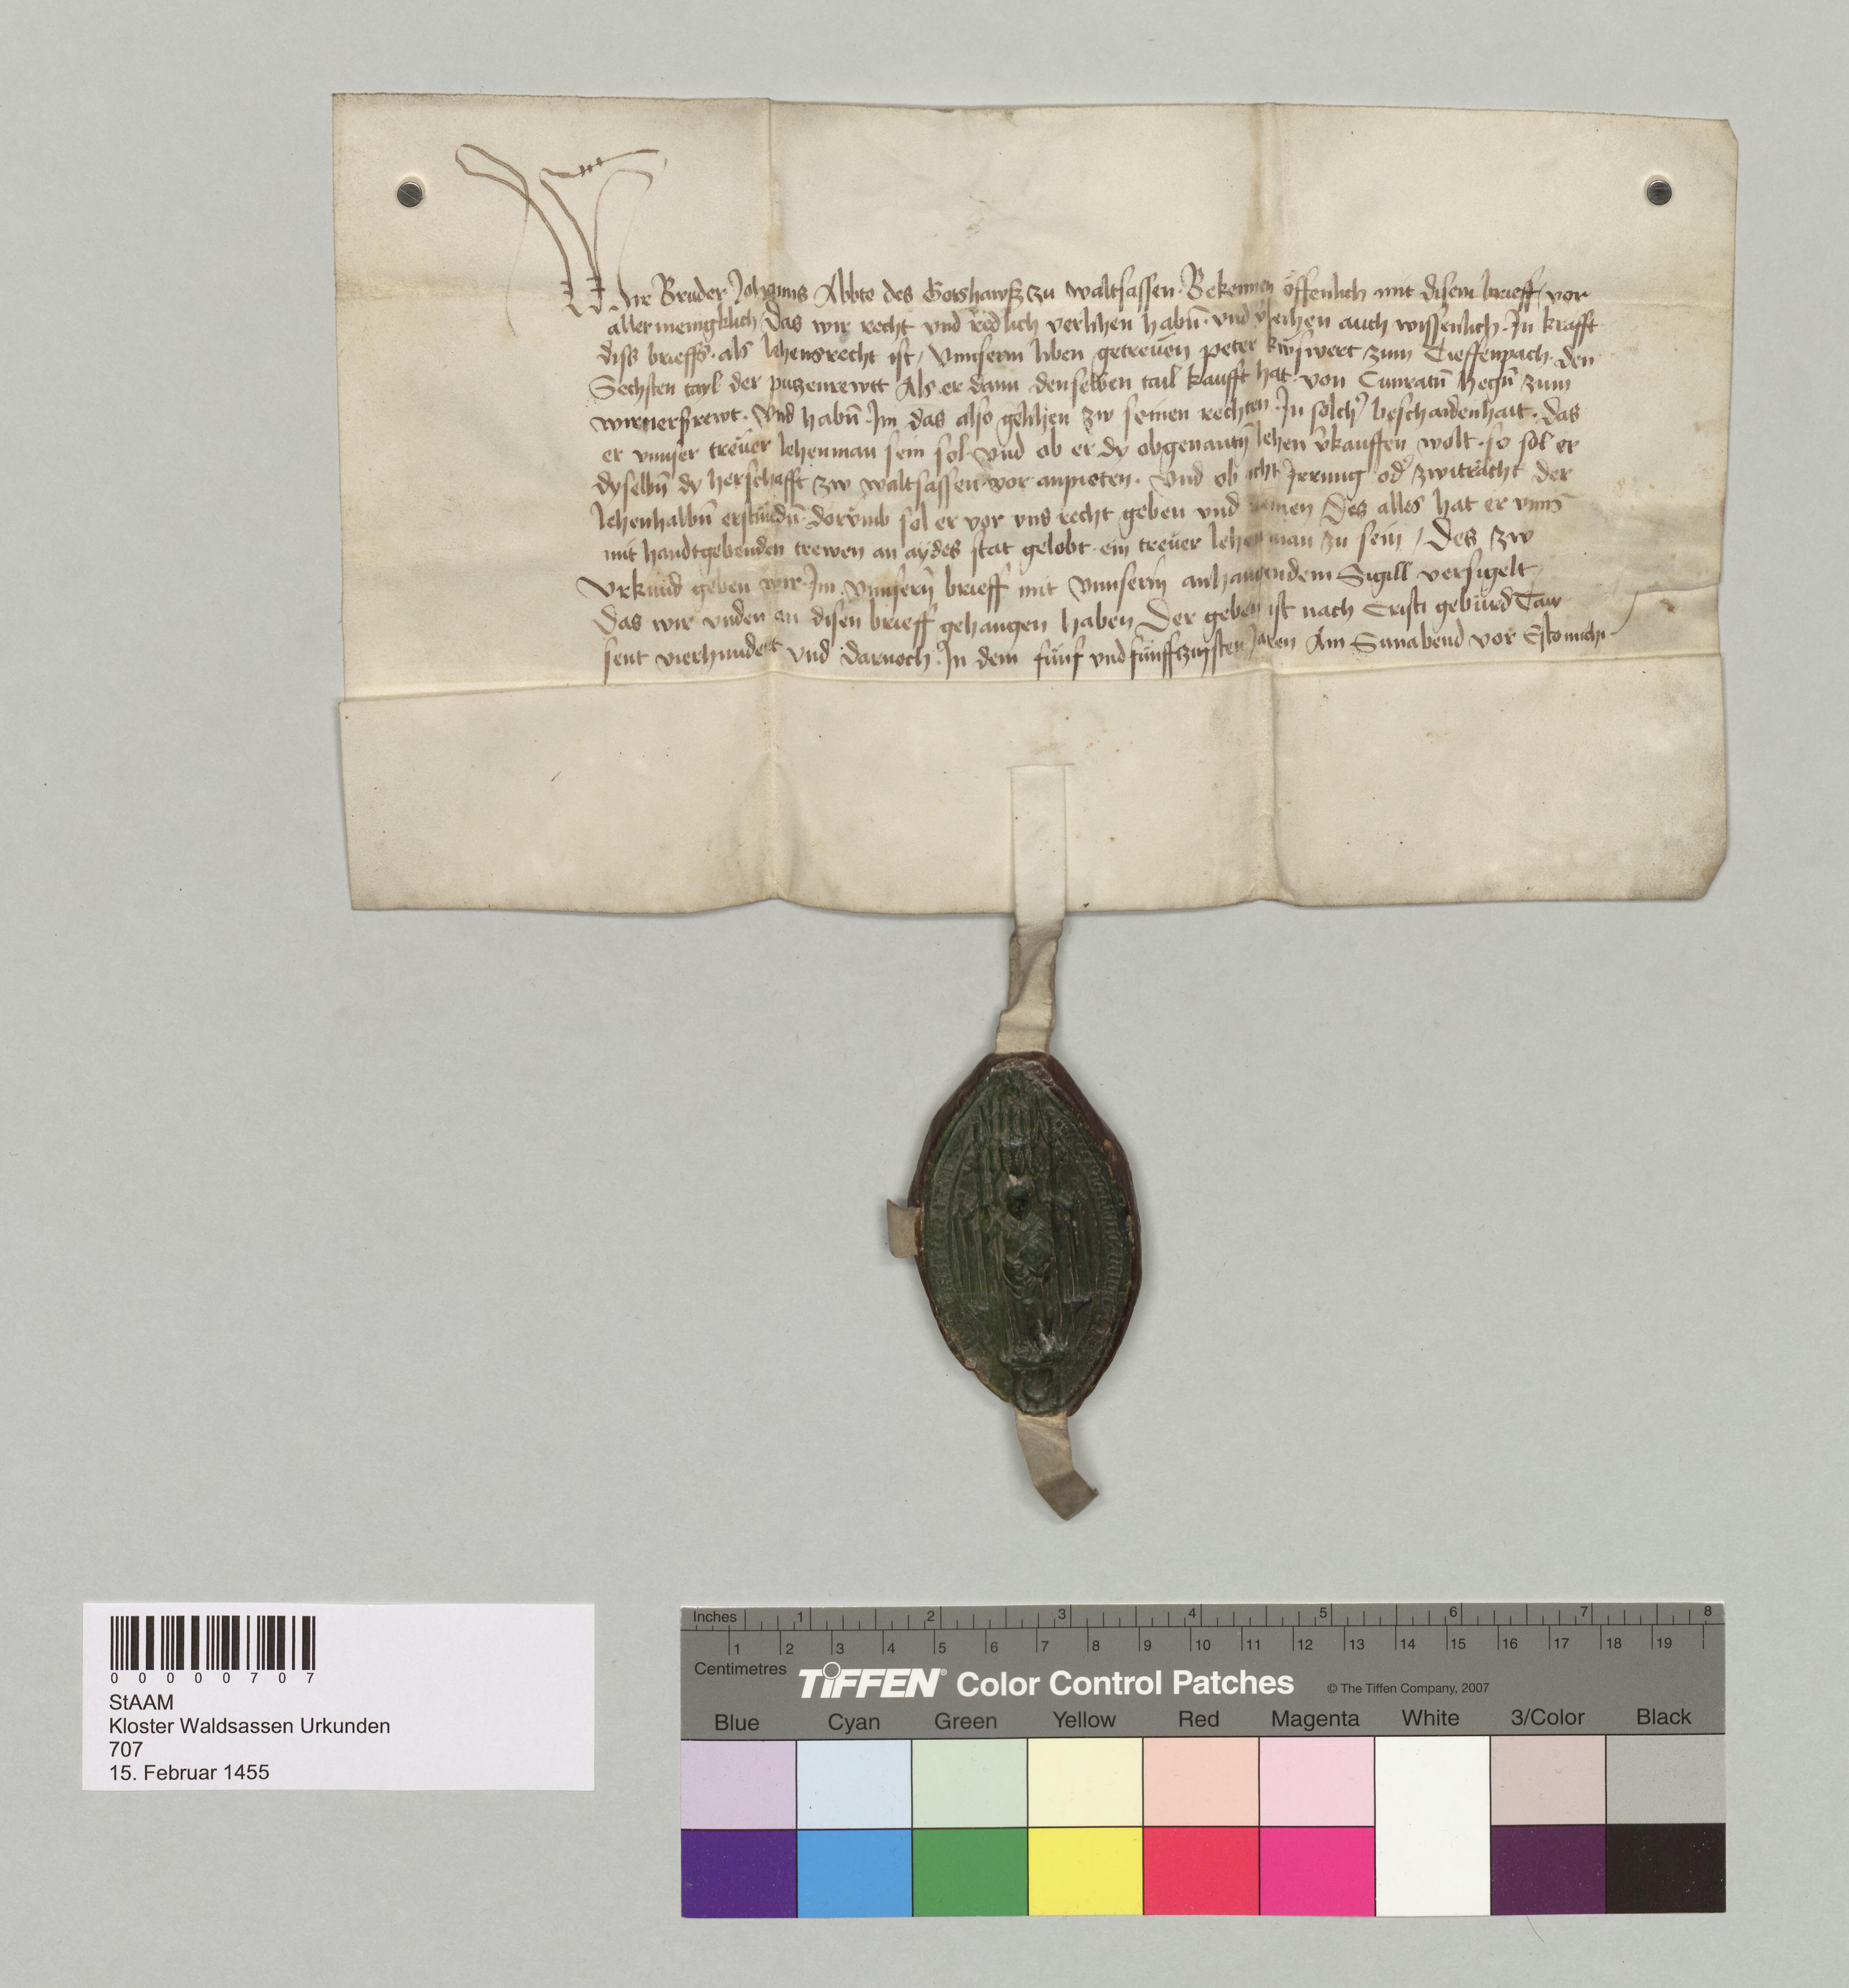 Wir Bruder Johanns Abbte des Gotshawß zu waltsassen Bekennen offenlich mit disem brieff vor
allermeingklich das wir recht vnd redlich verlihen habn̄ vnd v̓leihen auch wissenlich Jn krafft
diss brieffs als lehensrecht ist / Vnnserm liben getrewen peter zum Tieffenpach den
Sechsten tayl der puzenrewtt Als er dann denselben tail kaufft hat von Cunratn̄ hegn̄ zum
Vnd habn̄ Jm das also gelihen zw seinen rechten Jn solch̓ beschaidenhait das
er vnnser trewer lehenman sein sol vnd ob er dy obgenantn̄ lehen v̓kauffen wolt so sol er
dyselbn̄ dy herschafft zw waltsassen vor anpieten Vnd ob icht Jrrung od̓ zwitracht der
lehenhalbn̄ erstundn̄ dorvmb sol er vor vns recht geben vnd nemen Des alles hat er vnns
mit handtgebenden trewen an aydes stat gelobt ein trewer lehenman zu sein / Des zw
Vrkund geben wir Jm vnnsern̄ brieff mit Vnnserm anhangendem Sigill versigelt
Das wir vnden an disen brieff gehangen haben Der geben ist nach Cristi geburd Taw
sent vierhundert vnd darnoch Jn dem funf vnd funffzigsten Jaren Am Sunabend vor Estomichi
00000707
StAAM
Kloster Waldsassen Urkunden
707
15. Februar 1455
Inches 1 2 3 4 5 6 7 8
1 2 3 4 5 6 7 8 9 10 11 12 13 14 15 16 17 18 19
Centimetres
TIFFEN® Color Control Patches © The Tiffen Company, 2007
Blue Cyan Green Yellow Red Magenta White 3/Color Black